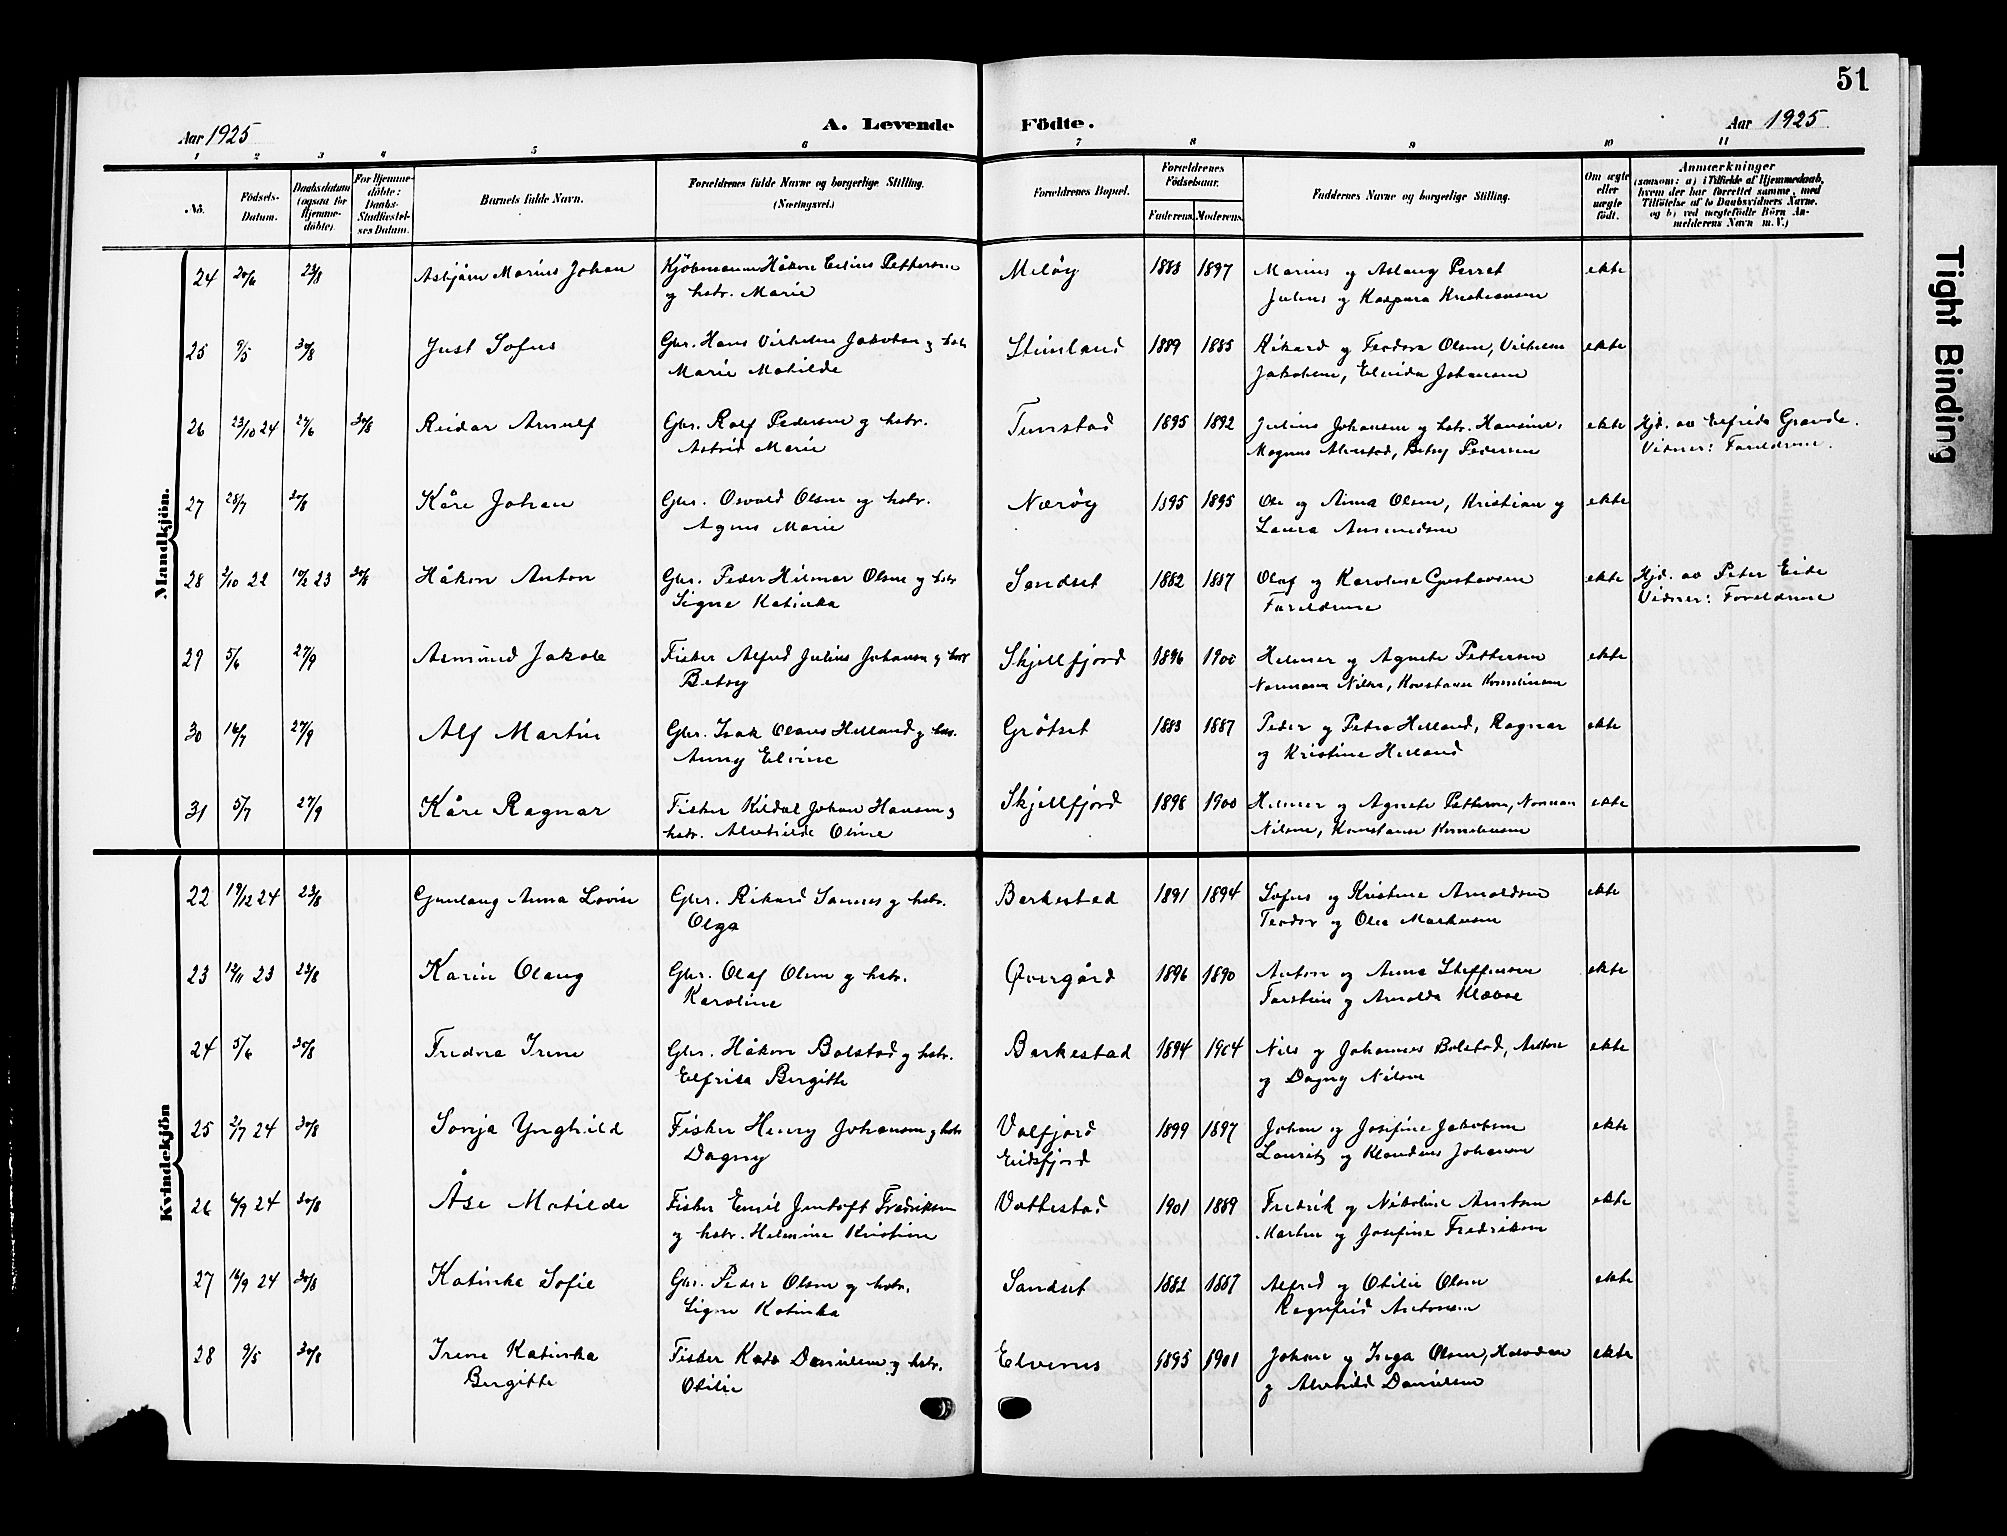 51
Aar 1925 A. Levende Födte. Aar 1925
1 2 3 4 5 6 7 8 9 10 11
No. Födsels-Datum. Daabsdatum (ogsaa for Hjemme-döbte). For Hjemme-döbte: Daabs-Stadfæstel-ses Datum. Barnets fulde Navn. Forældrenes fulde Navne og borgerlige Stilling. (Næringsvei.) Forældrenes Bopæl. Forældrenes Födselsaar. Faderens. Moderens. Faddernes Navne og borgerlige Stilling. Om ægte eller uægte födt. Anmærkninger (saasom: a) i Tilfælde af Hjemmedaab, hvem der har forrettet samme, med Tilföielse af to Daabsvidners Navne, og b) ved uægtefödte Börn An-melderens Navn m. V.)
Mandkjön.
24 20/6 23/8 Asbjörn Marius Johan Kjöbmann Håkon Edins Pettersen Meløy 1888 1897 Marius og Aslaug Perret ekte
og hstr. Marie Julius og Kaspara Kristiansen
25 9/5 30/8 Just Sofus Gbr. Hans Vilhelm Jakobsen og hstr Steinland 1889 1885 Rikard og Teodora Olsen, Vilhelm ekte
Marie Matilde Jakobsen, Elvida Johansen
26 23/10 24 24/6 30/8 Reidar Arnulf Gbr. Rolf Pedersen og hstr. Tunstad 1895 1892 Julius Johansen og hstr. Hansine, ekte Hjd. av Elfrida Grande.
Astrid Marie Magnus Alvestad, Betsy Pedersen Vidner: Foreldrene.
27 28/7 30/8 Kåre Johan Gbr. Osvald Olsen og hstr. Nærøy 1895 1895 Ole og Anna Olsen, Kristian og ekte
Agnes Marie Laura Amundsen
28 2/10 22 10/2 23 30/8 Håkon Anton Gbr. Peder Hilmar Olsen og hstr Sandset 1882 1887 Olaf og Karoline Gustavsen ekte Hjd. av Peter Eide
Signe Katinka Foreldrene Vidner: Foreldrene
29 5/6 27/9 Asmund Jakob Fisker Alfred Julius Johansen og hstr Skjellfjord 1896 1900 Helmer og Agnete Pettersen ekte
Betsy Normann Nilsen, Konstanse Kornelius­sen
30 16/7 27/9 Alf Martin Gbr. Isak Olaus Helland og hstr. Grötset 1883 1887 Peder og Petra Helland, Ragnar ekte
Anny Elvine og Kristine Helland
31 5/7 27/9 Kåre Ragnar Fisker Kildal Johan Hansen og Skjellfjord 1898 1900 Helmer og Agnete Pettersen, Norman ekte
hstr. Alvhilde Oline Nilsen, Konstanse Korneliussen
Kvindekjön
22 19/12 24 23/8 Gunlaug Anna Lovise Gbr. Rikard Sannes og hstr. Barkestad 1891 1894 Sofus og Kristine Arnoldsen ekte
Olga Teodor og Olea Markussen
23 12/11 23 23/8 Karin Olaug Gbr. Olaf Olsen og hstr. Øvergård 1896 1890 Anton og Anna Steffensen ekte
Karoline Torstein og Arnolda Klæboe
24 5/6 30/8 Fredna Irene Gbr. Håkon Bolstad og hstr. Barkestad 1894 1904 Nils og Johannes Bolstad, Anton ekte
Elfrida Bergitte og Dagny Nilsen
25 2/7 24 30/8 Sonja Ynghild Fisker Henry Johansen og hstr Valfjord 1899 1897 Johan og Josefine Jakobsen ekte
Dagny Eidsfjord Lauritz og Klaudius Johansen
26 6/9 24 30/8 Åse Matilde Fisker Emil Jentoft Fredriksen Vottestad 1901 1889 Fredrik og Nikoline Arntsen ekte
og hstr. Helmine Kristine Martin og Josefine Fredriksen
27 16/9 24 30/8 Katinka Sofie Gbr. Peder Olsen og hstr. Sandset 1882 1887 Alfred og Otilie Olsen ekte
Signe Katinka Ragnfrid Antonsen
28 9/5 30/8 Irene Katinka Fisker Kato Danielsen og hstr. Elvenes 1895 1901 Johan og Inga Olsen, Halvdan ekte
Bergitte Otilie og Alvhild Danielsen
Tight Binding